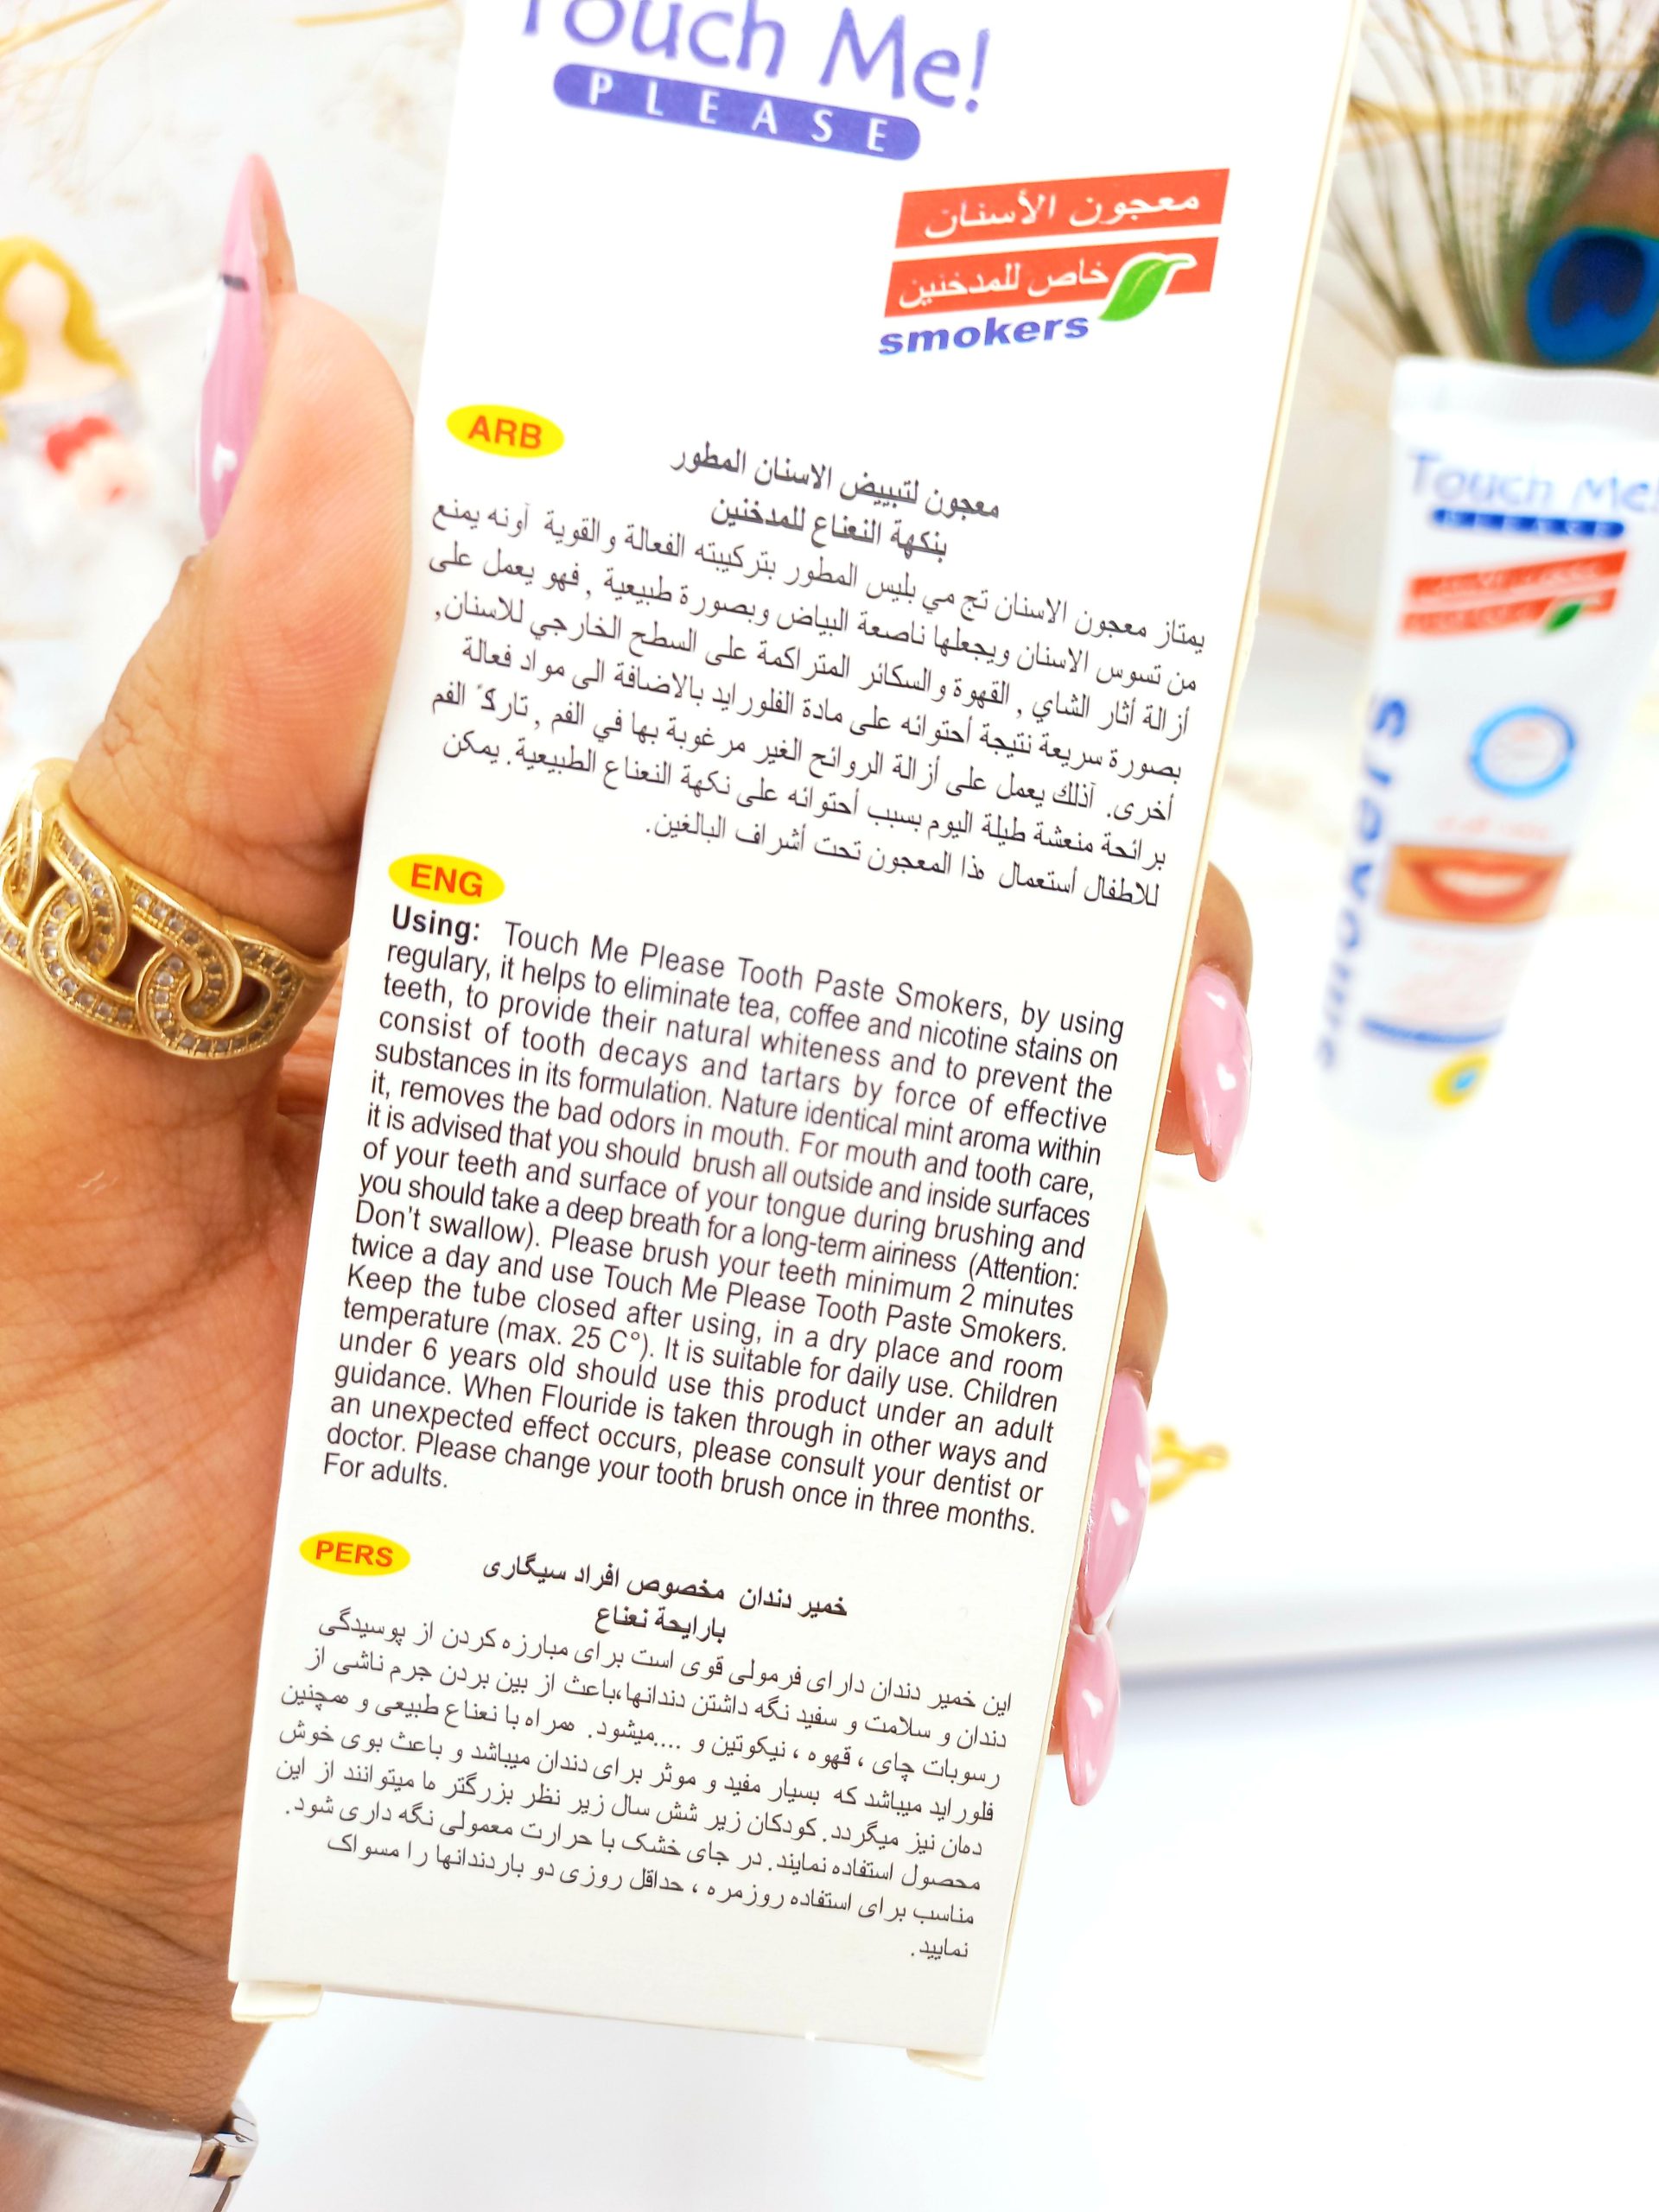 Touch Me!
PLEASE
معجون الأسنان
خاص للمدخنين
smokers
ARB
معجون لتبييض الاسنان المطور
بنكهة النعناع للمدخنين
يمتاز معجون الاسنان تج مي بليس المطور بتركيبته الفعالة والقوية آونه يمنع
من تسوس الاسنان ويجعلها ناصعة البياض وبصورة طبيعية , فهو يعمل على
أزالة أثار الشاي , القهوة والسكائر المتراكمة على السطح الخارجي للاسنان,
بصورة سريعة نتيجة أحتوائه على مادة الفلورايد بالاضافة الى مواد فعالة
أخرى. آذلك يعمل على أزالة الروائح الغير مرغوبة بها في الفم , تاركً الفم
برائحة منعشة طيلة اليوم بسبب أحتوائه على نكهة النعناع الطبيعية. يمكن
للاطفال أستعمال هذا المعجون تحت أشراف البالغين.
ENG
Using: Touch Me Please Tooth Paste Smokers, by using
regulary, it helps to eliminate tea, coffee and nicotine stains on
teeth, to provide their natural whiteness and to prevent the
consist of tooth decays and tartars by force of effective
substances in its formulation. Nature identical mint aroma within
it, removes the bad odors in mouth. For mouth and tooth care,
it is advised that you should brush all outside and inside surfaces
of your teeth and surface of your tongue during brushing and
you should take a deep breath for a long-term airiness (Attention:
Don't swallow). Please brush your teeth minimum 2 minutes
twice a day and use Touch Me Please Tooth Paste Smokers.
Keep the tube closed after using, in a dry place and room
temperature (max. 25 C°). It is suitable for daily use. Children
under 6 years old should use this product under an adult
guidance. When Flouride is taken through in other ways and
an unexpected effect occurs, please consult your dentist or
doctor. Please change your tooth brush once in three months.
For adults.
PERS
خمیر دندان مخصوص افراد سیگاری
بارایحة نعناع
این خمیر دندان دارای فرمولی قوی است برای مبارزه کردن از پوسیدگی
دندان و سلامت و سفید نگه داشتن دندانها،باعث از بین بردن جرم ناشی از
رسوبات چای ، قهوه ، نیکوتین و ....میشود. همراه با نعناع طبیعی و همچنین
فلوراید میباشد که بسیار مفید و موثر برای دندان میباشد و باعث بوی خوش
دهان نیز میگردد. کودکان زیر شش سال زیر نظر بزرگتر ها میتوانند از این
محصول استفاده نمایند. در جای خشک با حرارت معمولی نگه داری شود.
مناسب برای استفاده روزمره ، حداقل روزی دو باردندانها را مسواک
نمایید.
Touch Me!
smokers